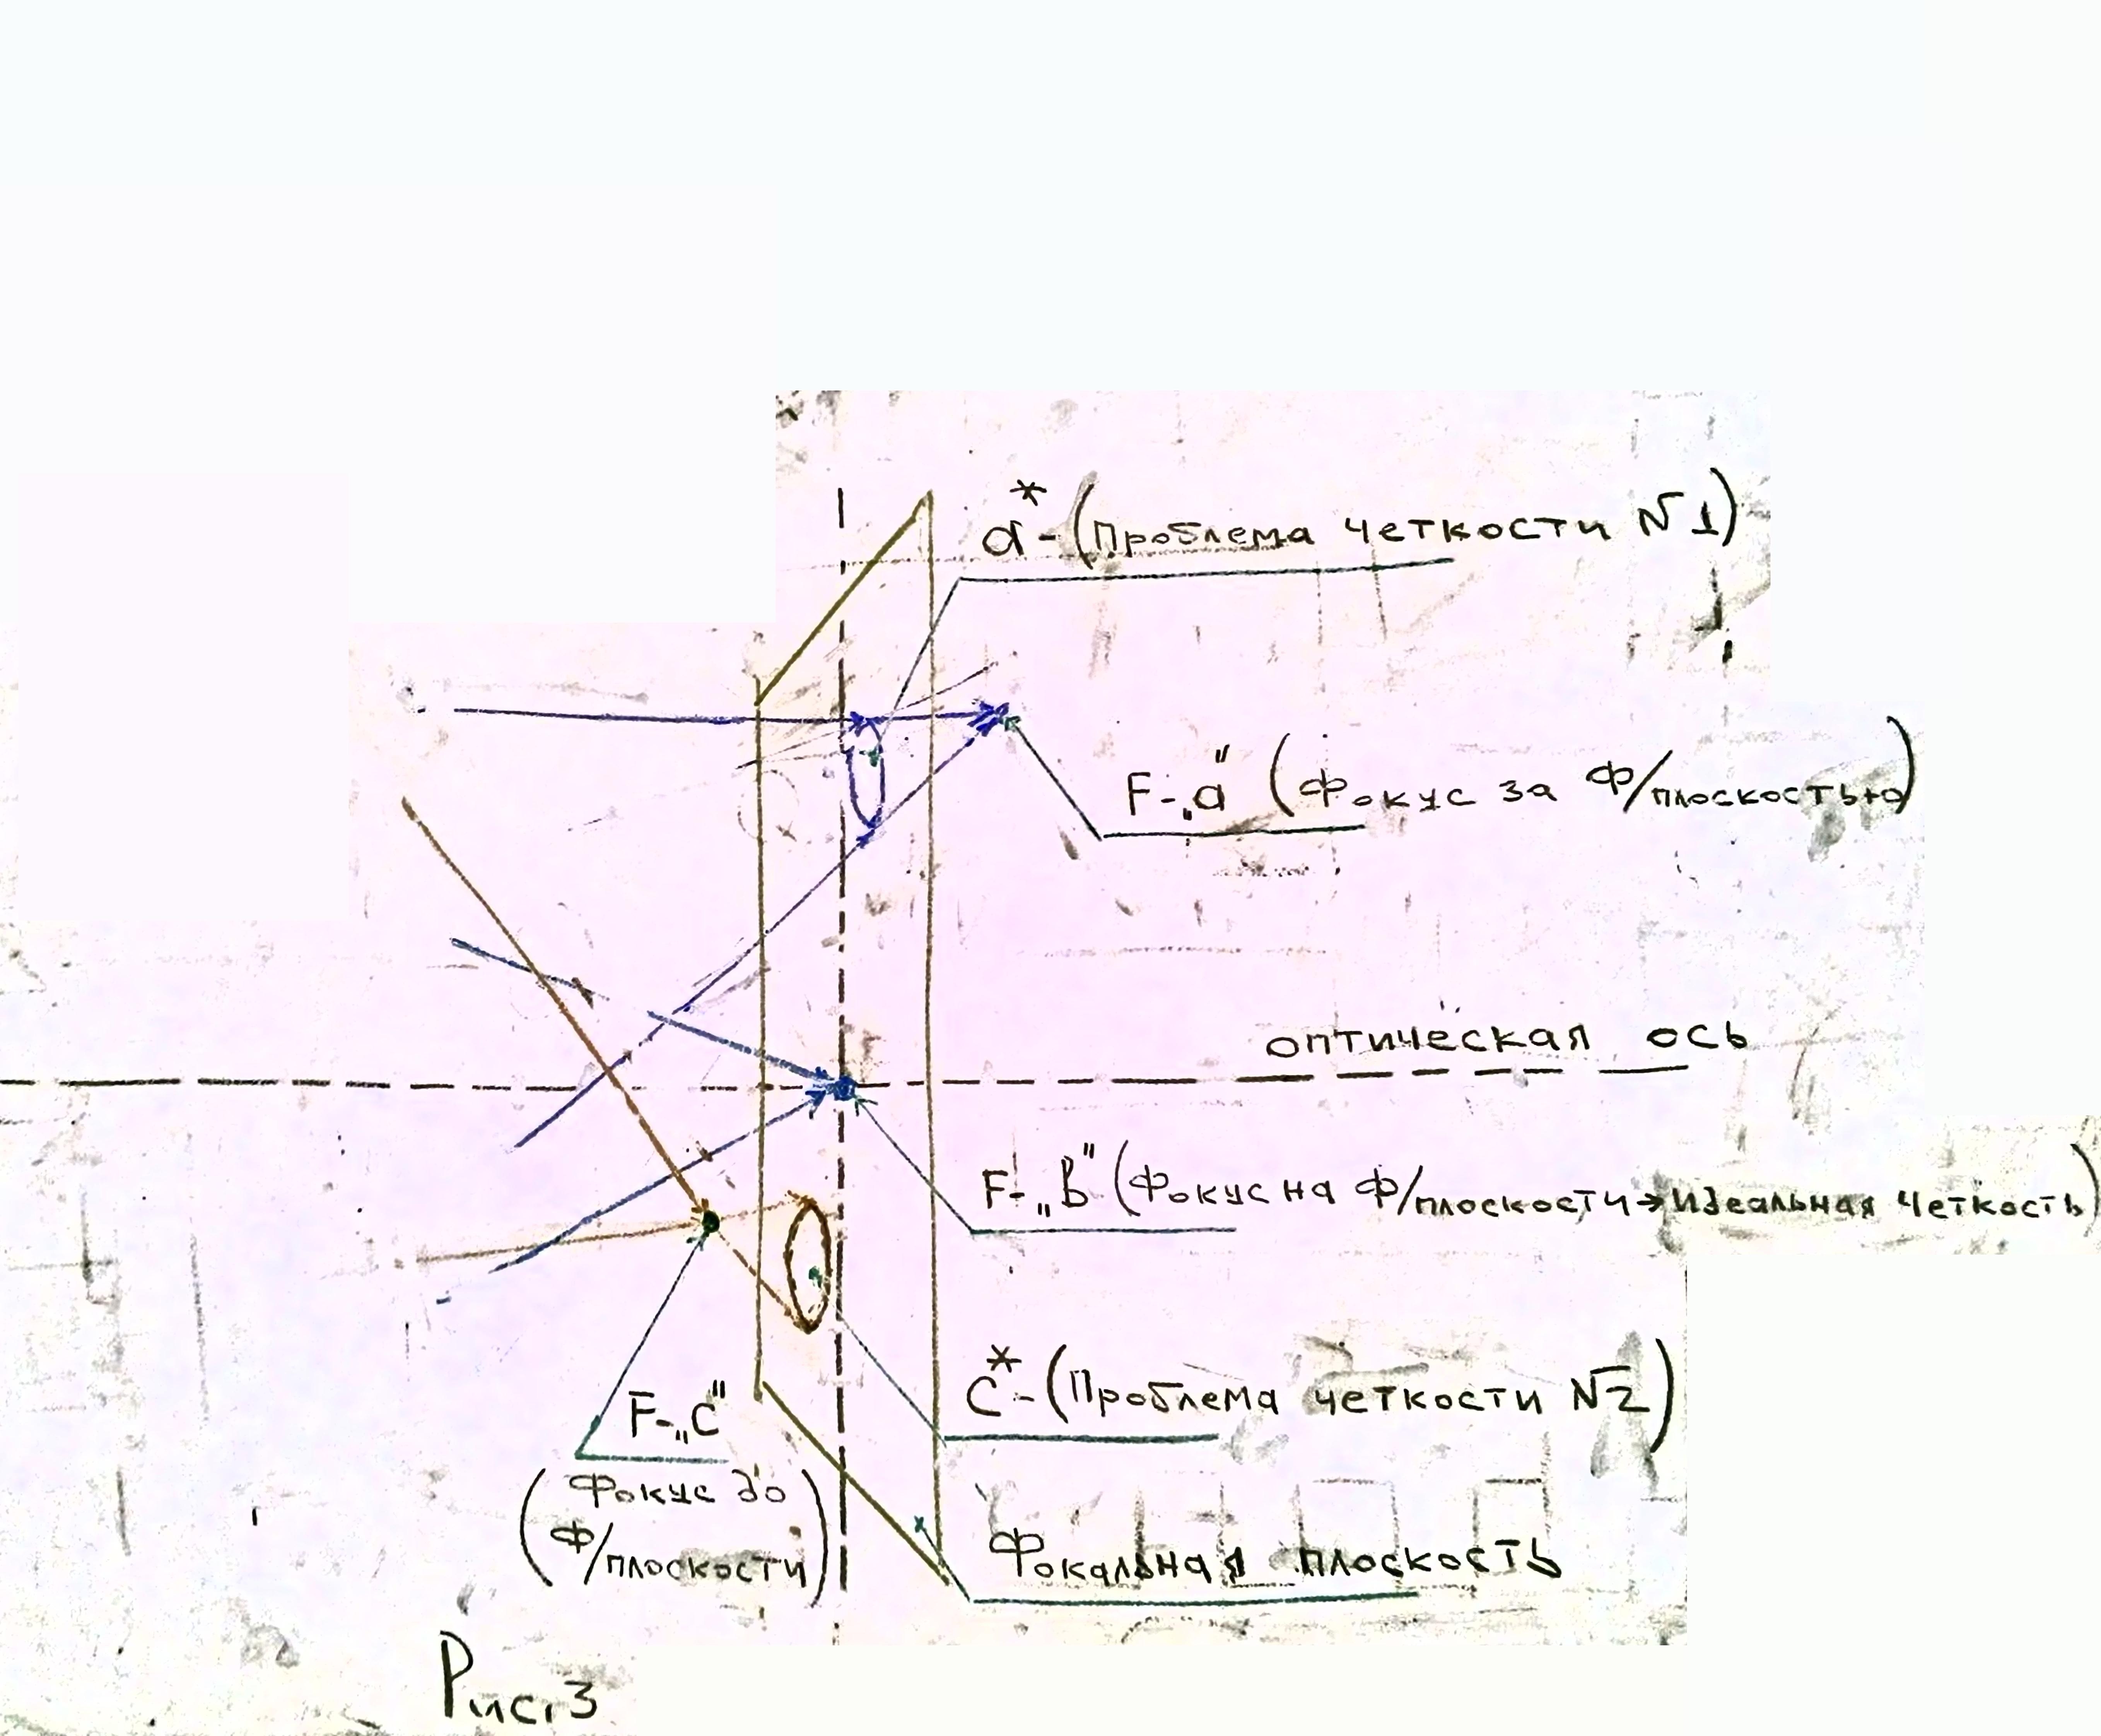 a* - (Проблема четкости №1)
F-„a" (Фокус за Ф/плоскостью)
оптическая ось
F-„b" (Фокус на Ф/плоскости→Идеальная четкость)
c* - (Проблема четкости №2)
F-„c"
(Фокус до
Ф/плоскости)
Фокальная плоскость
Рис. 3